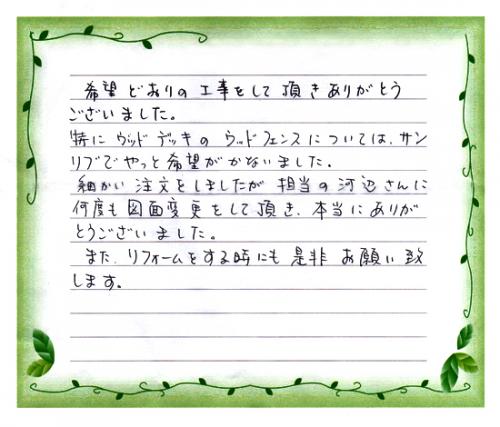 希望どおりの工事をして頂きありがとう
ございました。
特にウッドデッキのウッドフェンスについては、サン
リブでやっと希望がかないました。
細かい注文をしましたが担当の河辺さんに
何度も図面変更をして頂き、本当にありが
とうございました。
また、リフォームをする時にも是非お願い致
します。